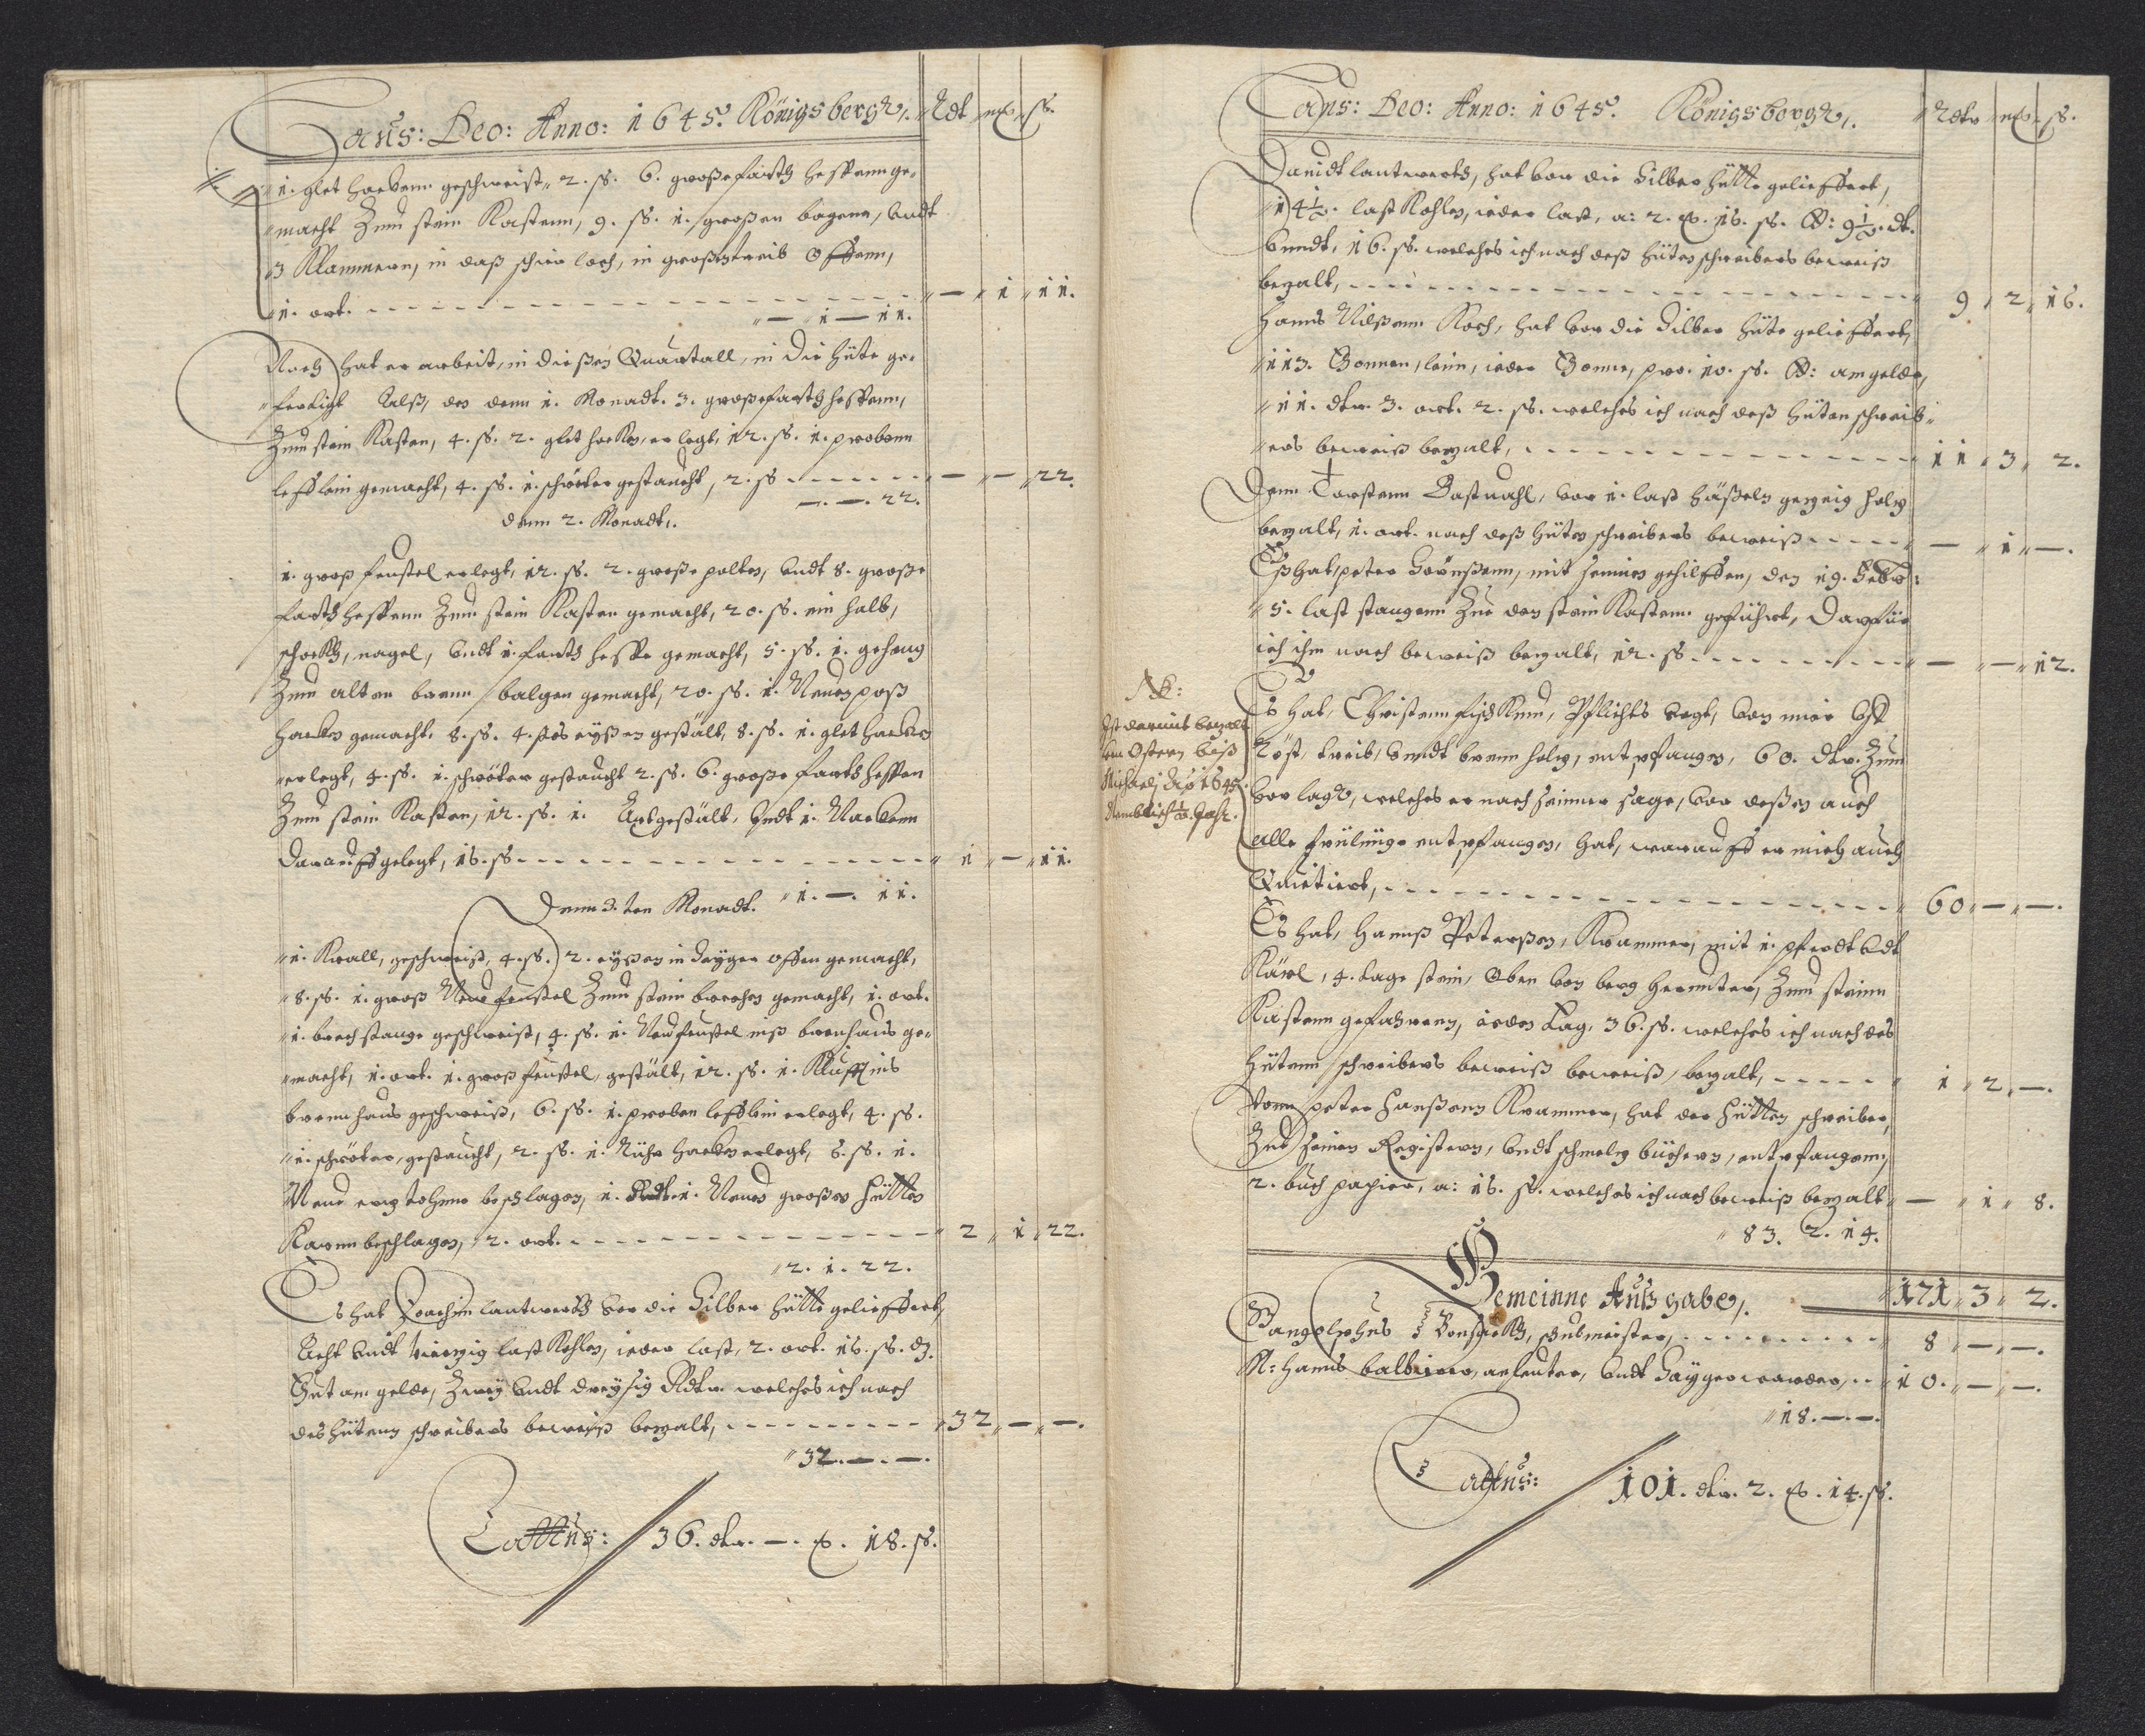 Laus: Deo: Anno: 1645. Königsbergk. Rdt ort ß.
1. glet hacken geschweist, 2. ß. 6. große farth hespenn ge-
macht Zum stein Kastenn, 9. ß. 1. großen bogenn, vndt
3 Klammern, in daß schier loch, in großen treib Offenn,
1. ort. — 1 11.
— 1 — 11.
Noch hat er arbeit, in dießen Quartall, in die hüte ge-
fertigt Alß, den denn 1. Monadt. 3. große farth hespenn,
Zum stein Kasten, 4. ß. 2. glet hacken, erlegt, 12. ß. 1. probenn
lefflein gemacht, 4. ß. 1. schröter gestaucht, 2. ß — — 22.
—. —. 22.
denn 2. Monadt.
1. groß feustel erlegt, 12. ß. 2. große polten, vndt 8. große
farth hespenn Zum stein Kasten gemacht, 20. ß. ein halb,
schockh, nagel, vndt 1. farth hespe gemacht, 5. ß. 1. geheng
Zum alten brenn balgen gemacht, 20. ß. 1. Neuen poß
hacken gemacht. 8. ß. 4. stos eyßen gestält, 8. ß. 1. glet hacken
erlegt, 4. ß. 1. schröter gestaucht 2. ß. 6. große farth hespen
Zum stein Kasten, 12. ß. 1. Axt gestält, vndt 1. Nackenn
darauff gelegt, 16. ß 1 — 11.
1. —. 11.
Denn 3. ten Monadt.
1. Krall, geschweist, 4. ß. 2. eyßen in Seyger offen gemacht,
8. ß. 1. groß Neue feustel Zum stein brechen gemacht, 1. ort.
1. brech stange geschweist, 4. ß. 1. Neu feustel inß brenhaus ge-
macht, 1. ort. 1. groß feustel, gestält, 12. ß. 1. Klufft ins
brennhaus geschweist, 6. ß. 1. proben lefflein erlegt, 4. ß.
1. schröter, gestaucht, 2. ß. 1. Rühr hacken erlegt, 6. ß. 1.
Neue beschlagen, 1. 1. Neuen großen Hütten
Karnn beschlagen, 2. ort. 2 1 22.
2. 1. 22.
Es hat Joachim lantwerth vor die Silber hütte gelieffert,
Acht vndt vierzig last Kohlen, ieder last, 2. ort. 16. ß. dz.
Thut am gelde, Zwey vndt dreysig Rdtr. welches ich nach
des hütenn schreibers beweiß bezalt, 32 — —.
32. —. —.
Lattus: 36. dtr. —. ort. 18. ß.
Laus: Deo: Anno: 1645. Königsbergk. Rdtr ort ß.
Dauidt lantwerth, hat vor die Silber hütte gelieffert,
14½. last Kohlen, ieder last, a: 2. ort. 16. ß. 9½. dt.
vnndt, 16. ß. welches ich nach deß hüten schreibers beweiß
bezalt, 9 2 16.
Hanns Nilßenn Koch, hat vor die Silber hüte gelieffert,
113. Tonnen, leim, ieder Tonne, pro. 10. ß. am gelde,
11. dtr. 3. ort. 2. ß. welches ich nach deß hüten schreib-
ers beweiß bezalt, 11 3 2.
Denn Torstenn vor 1. last häßeln gezeig holz
bezalt, 1. ort. nach deß hüten schreibers beweiß — 1 —.
Eß hat, peter Sörnßenn, mit seinen gehilffen, den 19. Febr:
5. last stangenn Zue den stein Kastenn. geführt, Darfür
ich ihm nach beweiß bezalt, 12. ß — — 12.
NB:
Ist darmit bezalt
von Ostern biß
Michaelj Ao 1645
Nemblich ½. Jahr.
Es hat, Christenn, Pflichts vogt, von mir vff
Röst, treib, vnndt brenn holz, entpfangen, 60. dtr. Zum
vorlage, welches er nach seinner sage, vor deßen auch
alle früling entpfangen, hat, warauff er mich auch
Quitiert, 60 — —.
Es hat, Hannß Peterßen, Krammer, mit 1. pferdt vndt
Kärl, 4. tage stein, Oben von berg herunter, Zum steinn
Kastenn gefahrenn, ieden tag, 36. ß. welches ich nach des
hütenn schreibers beweiß beweiß, bezalt, 1 2 —.
Vonn peter Hanßenn Krammer, hat der Hütten schreiber,
Zue seinen Registern, vndt schmelz büchern, entpfangenn,
2. buch papier, a: 16. ß. welches ich nach beweiß bezalt — 1 8.
83. 2. 14.
Gemeinne Außgabe. 171 3 2.
schulmeister, 8 —. —.
M: Hanns balbierer, vndt Seyger 10. — —.
18. —. —.
Lattus: 101. dtr. 2. ort. 14. ß.